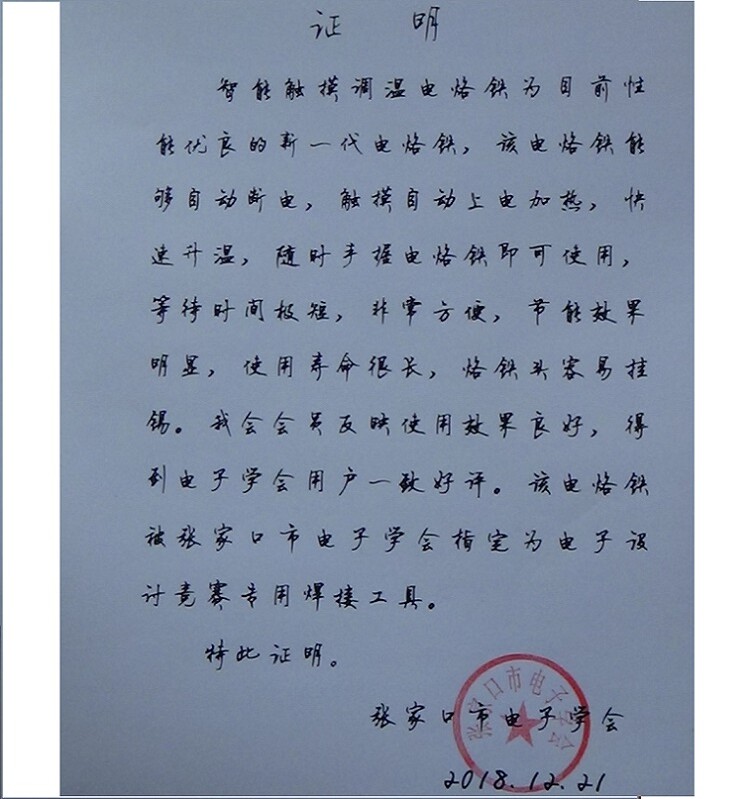 证 明
智能触摸调温电烙铁为目前性
能优良的新一代电烙铁，该电烙铁能
够自动断电，触摸自动上电加热，快
速升温，随时手握电烙铁即可使用，
等待时间极短，非常方便，节能效果
明显，使用寿命很长，烙铁头容易挂
锡。我会会员反映使用效果良好，得
到电子学会用户一致好评。该电烙铁
被张家口市电子学会指定为电子设
计竞赛专用焊接工具。
特此证明。
张家口市电子学会
张家口市电子学会
2018.12.21